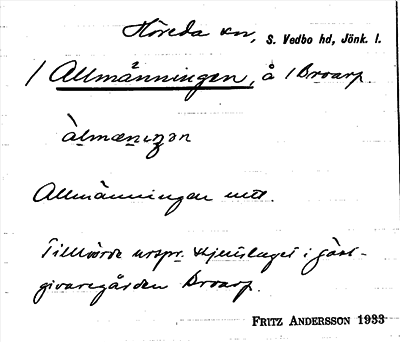 Höreda sn, S. Vedbo hd, Jönk. l.
/ Allmänningen, å / Broarp.
àlmæniŋən
Allmänningen utt.
Tillhörde urspr. skjutslaget i gäst-
givaregården Broarp.
FRITZ ANDERSSON 1933